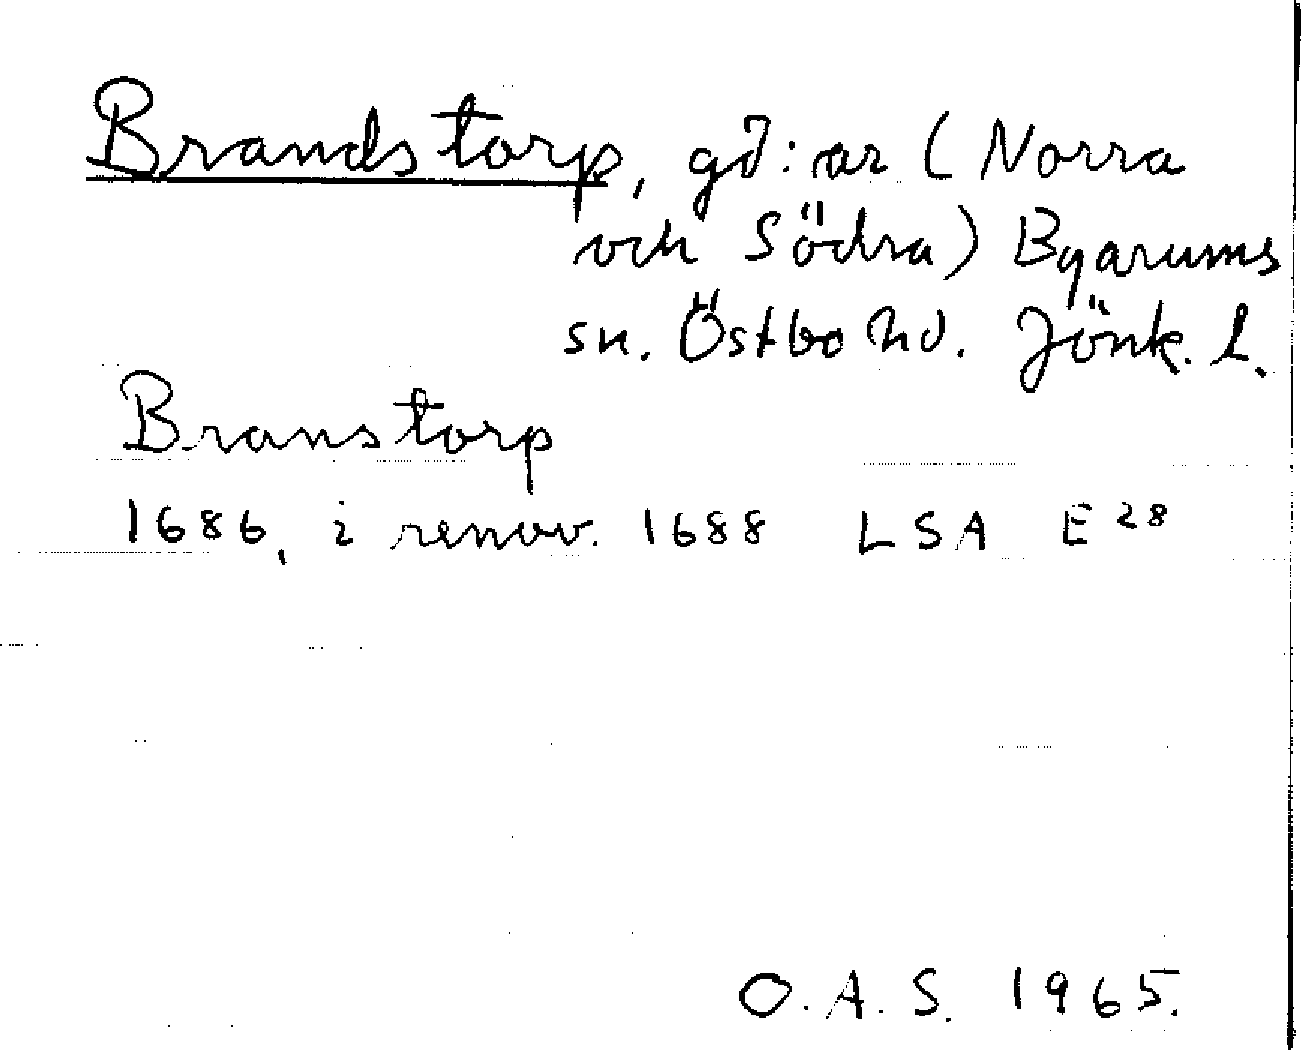 Brandstorp, gd:ar (Norra
och Södra) Byarums
sn. Östbo hd. Jönk. l.
Branstorp
1686, i renov. 1688 LSA E 28
O.A.S. 1965.